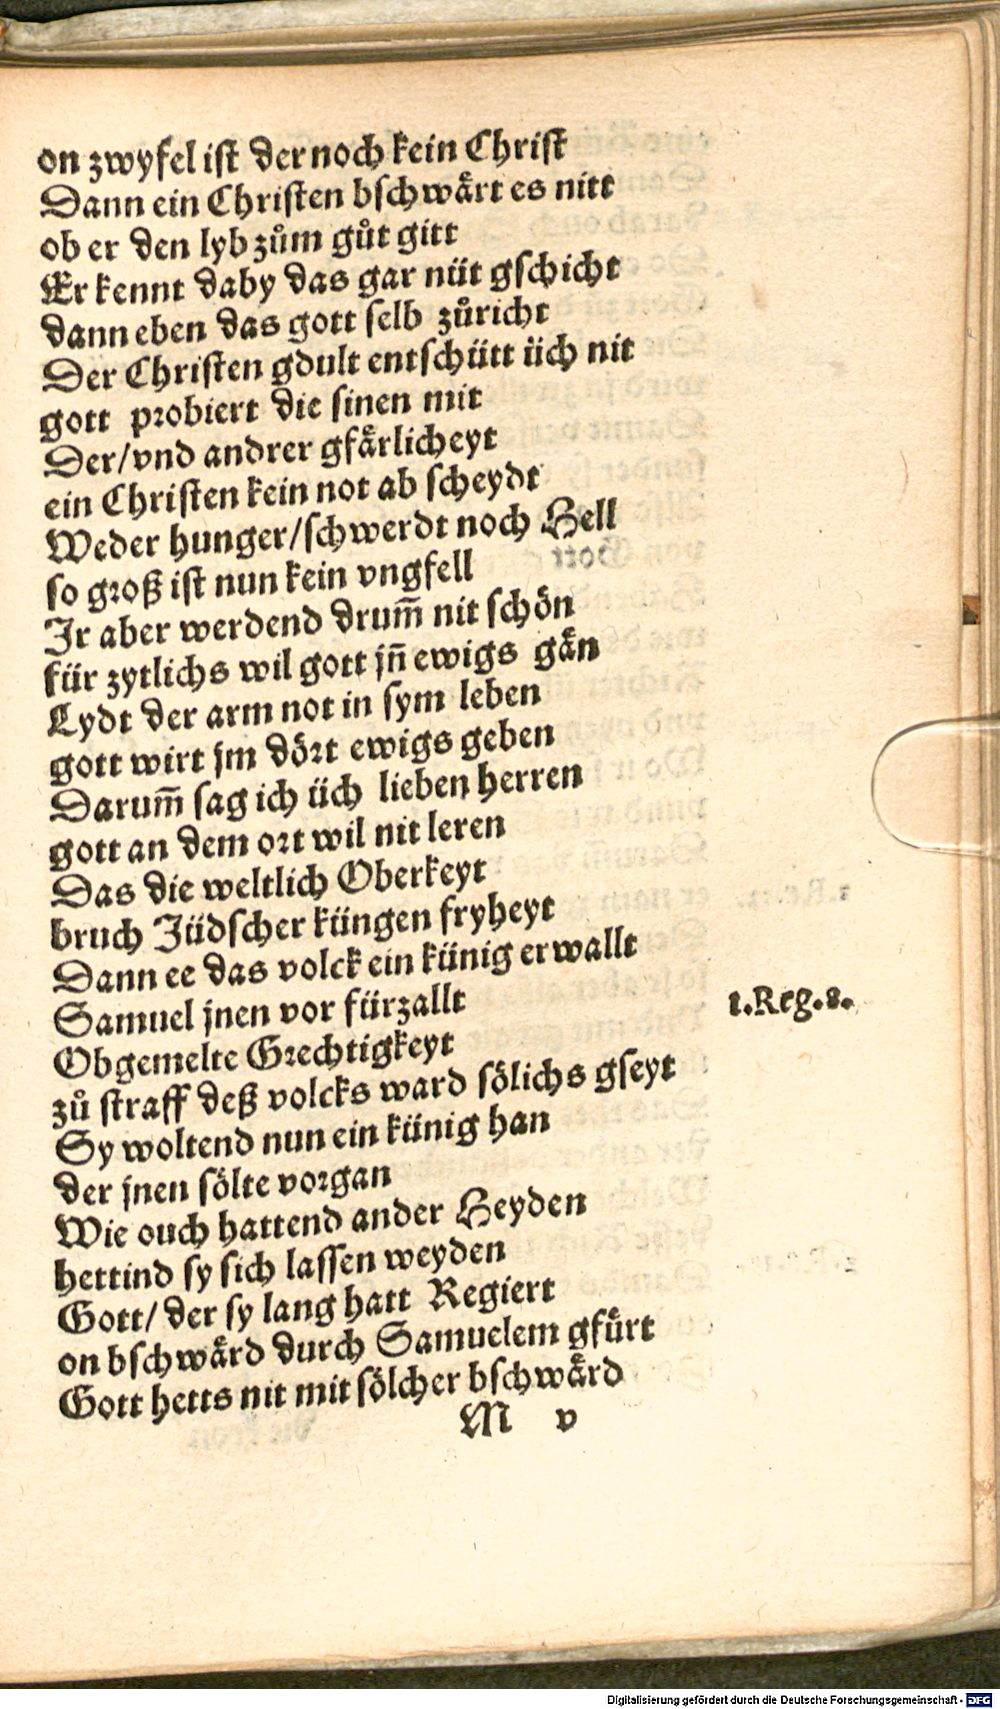 on zwyfel ist der noch kein Christ
Dann ein Christen bschwårt es nitt
ob er den lyb zům gůt gitt
Er kennt daby das gar nüt gschicht
dann eben das gott selb zůricht
Der Christen gdult entschütt üch nit
gott probiert die sinen mit
Der/vnd andrer gfårlicheyt
ein Christen kein not ab scheydt
Weder hunger/schwerdt noch Hell
so groß ist nun kein vngfell
Ir aber werdend drum̃ nit schön
für zytlichs wil gott jn̄ ewigs gån
Lydt der arm not in sym leben
gott wirt jm dört ewigs geben
Darum̃ sag ich üch lieben herren
gott an dem ort wil nit leren
Das die weltlich Oberkeyt
bruch Jüdscher küngen fryheyt
Dann ee das volck ein künig erwallt
Samuel jnen vor fürzallt
1.Reg.8.
Obgemelte Grechtigkeyt
zů straff deß volcks ward sölichs gseyt
Sy woltend nun ein künig han
der jnen sölte vorgan
Wie ouch hattend ander Heyden
hettind sy sich lassen weyden
Gott/ der sy lang hatt Regiert
on bschwård durch Samuelem gfürt
Gott hetts nit mit sölcher bschwård
M v
Digitalisierung gefördert durch die Deutsche Forschungsgemeinschaft - DFG